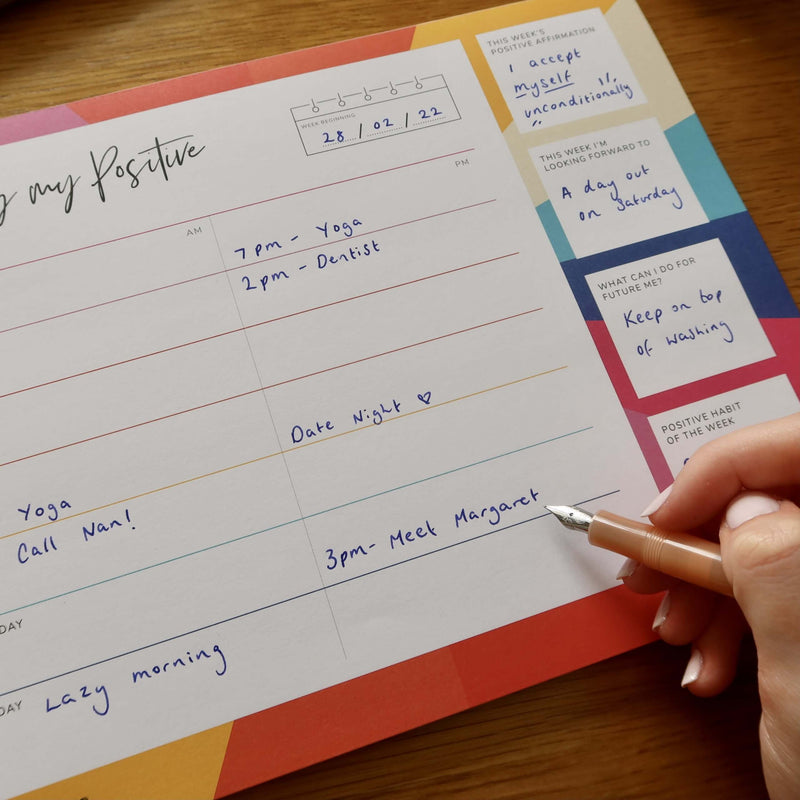 my Positive
WEEK BEGINNING
28 / 02 / 22
AM
PM
7pm - Yoga
2pm - Dentist
Date Night ♡
Yoga
Call Nan!
3pm- Meet Margaret
DAY
DAY Lazy morning
THIS WEEK'S
POSITIVE AFFIRMATION
I accept
myself
unconditionally
THIS WEEK I'M
LOOKING FORWARD TO
A day out
on Saturday
WHAT CAN I DO FOR
FUTURE ME?
Keep on top
of washing
POSITIVE HABIT
OF THE WEEK